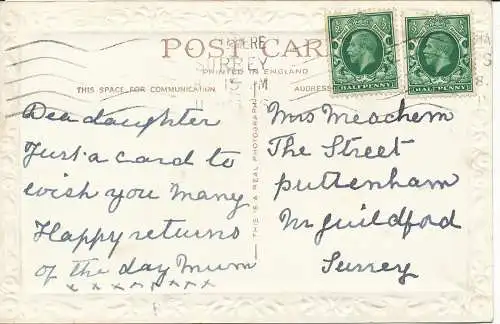 POST CARD
PRINTED IN ENGLAND
THIS SPACE FOR COMMUNICATION
ADDRESS
SURREY
15
HALFPENNY
HALFPENNY
Dea daughter
Just a card to
wish you Many
Happy returns
of the day Mum
x x x x x x x x
THIS IS A REAL PHOTOGRAPH
Mrs Meachem
The Street
puttenham
Nr guildford
Surrey